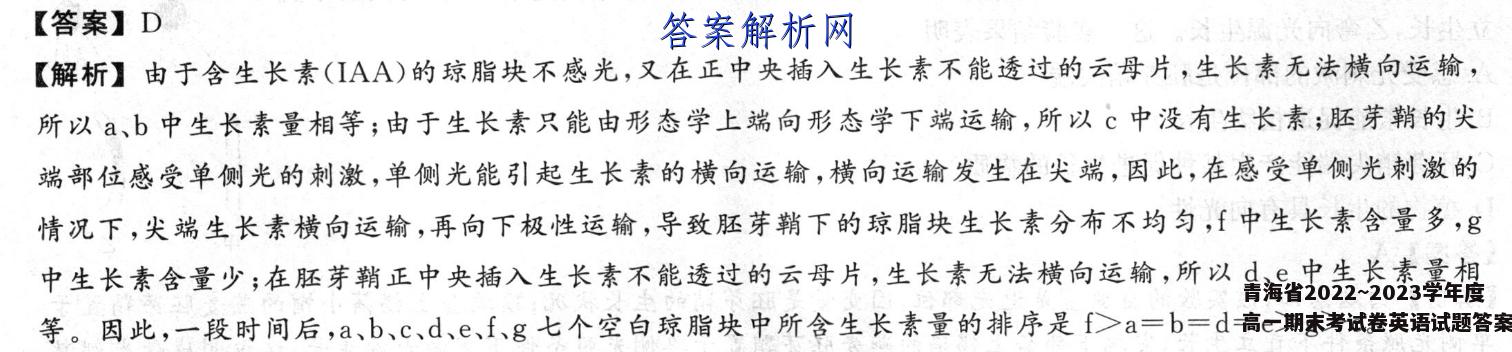 【答案】D
答案解析网
【解析】由于含生长素(IAA)的琼脂块不感光,又在正中央插入生长素不能透过的云母片,生长素无法横向运输,
所以a、b中生长素量相等;由于生长素只能由形态学上端向形态学下端运输,所以c中没有生长素;胚芽鞘的尖
端部位感受单侧光的刺激,单侧光能引起生长素的横向运输,横向运输发生在尖端,因此,在感受单侧光刺激的
情况下,尖端生长素横向运输,再向下极性运输,导致胚芽鞘下的琼脂块生长素分布不均匀,f中生长素含量多,g
中生长素含量少;在胚芽鞘正中央插入生长素不能透过的云母片,生长素无法横向运输,所以d、e中生长素量相
等。因此,一段时间后,a、b、c、d、e、f、g七个空白琼脂块中所含生长素量的排序是f>a=b=d=
青海省2022~2023学年度
高一期末考试卷英语试题答案